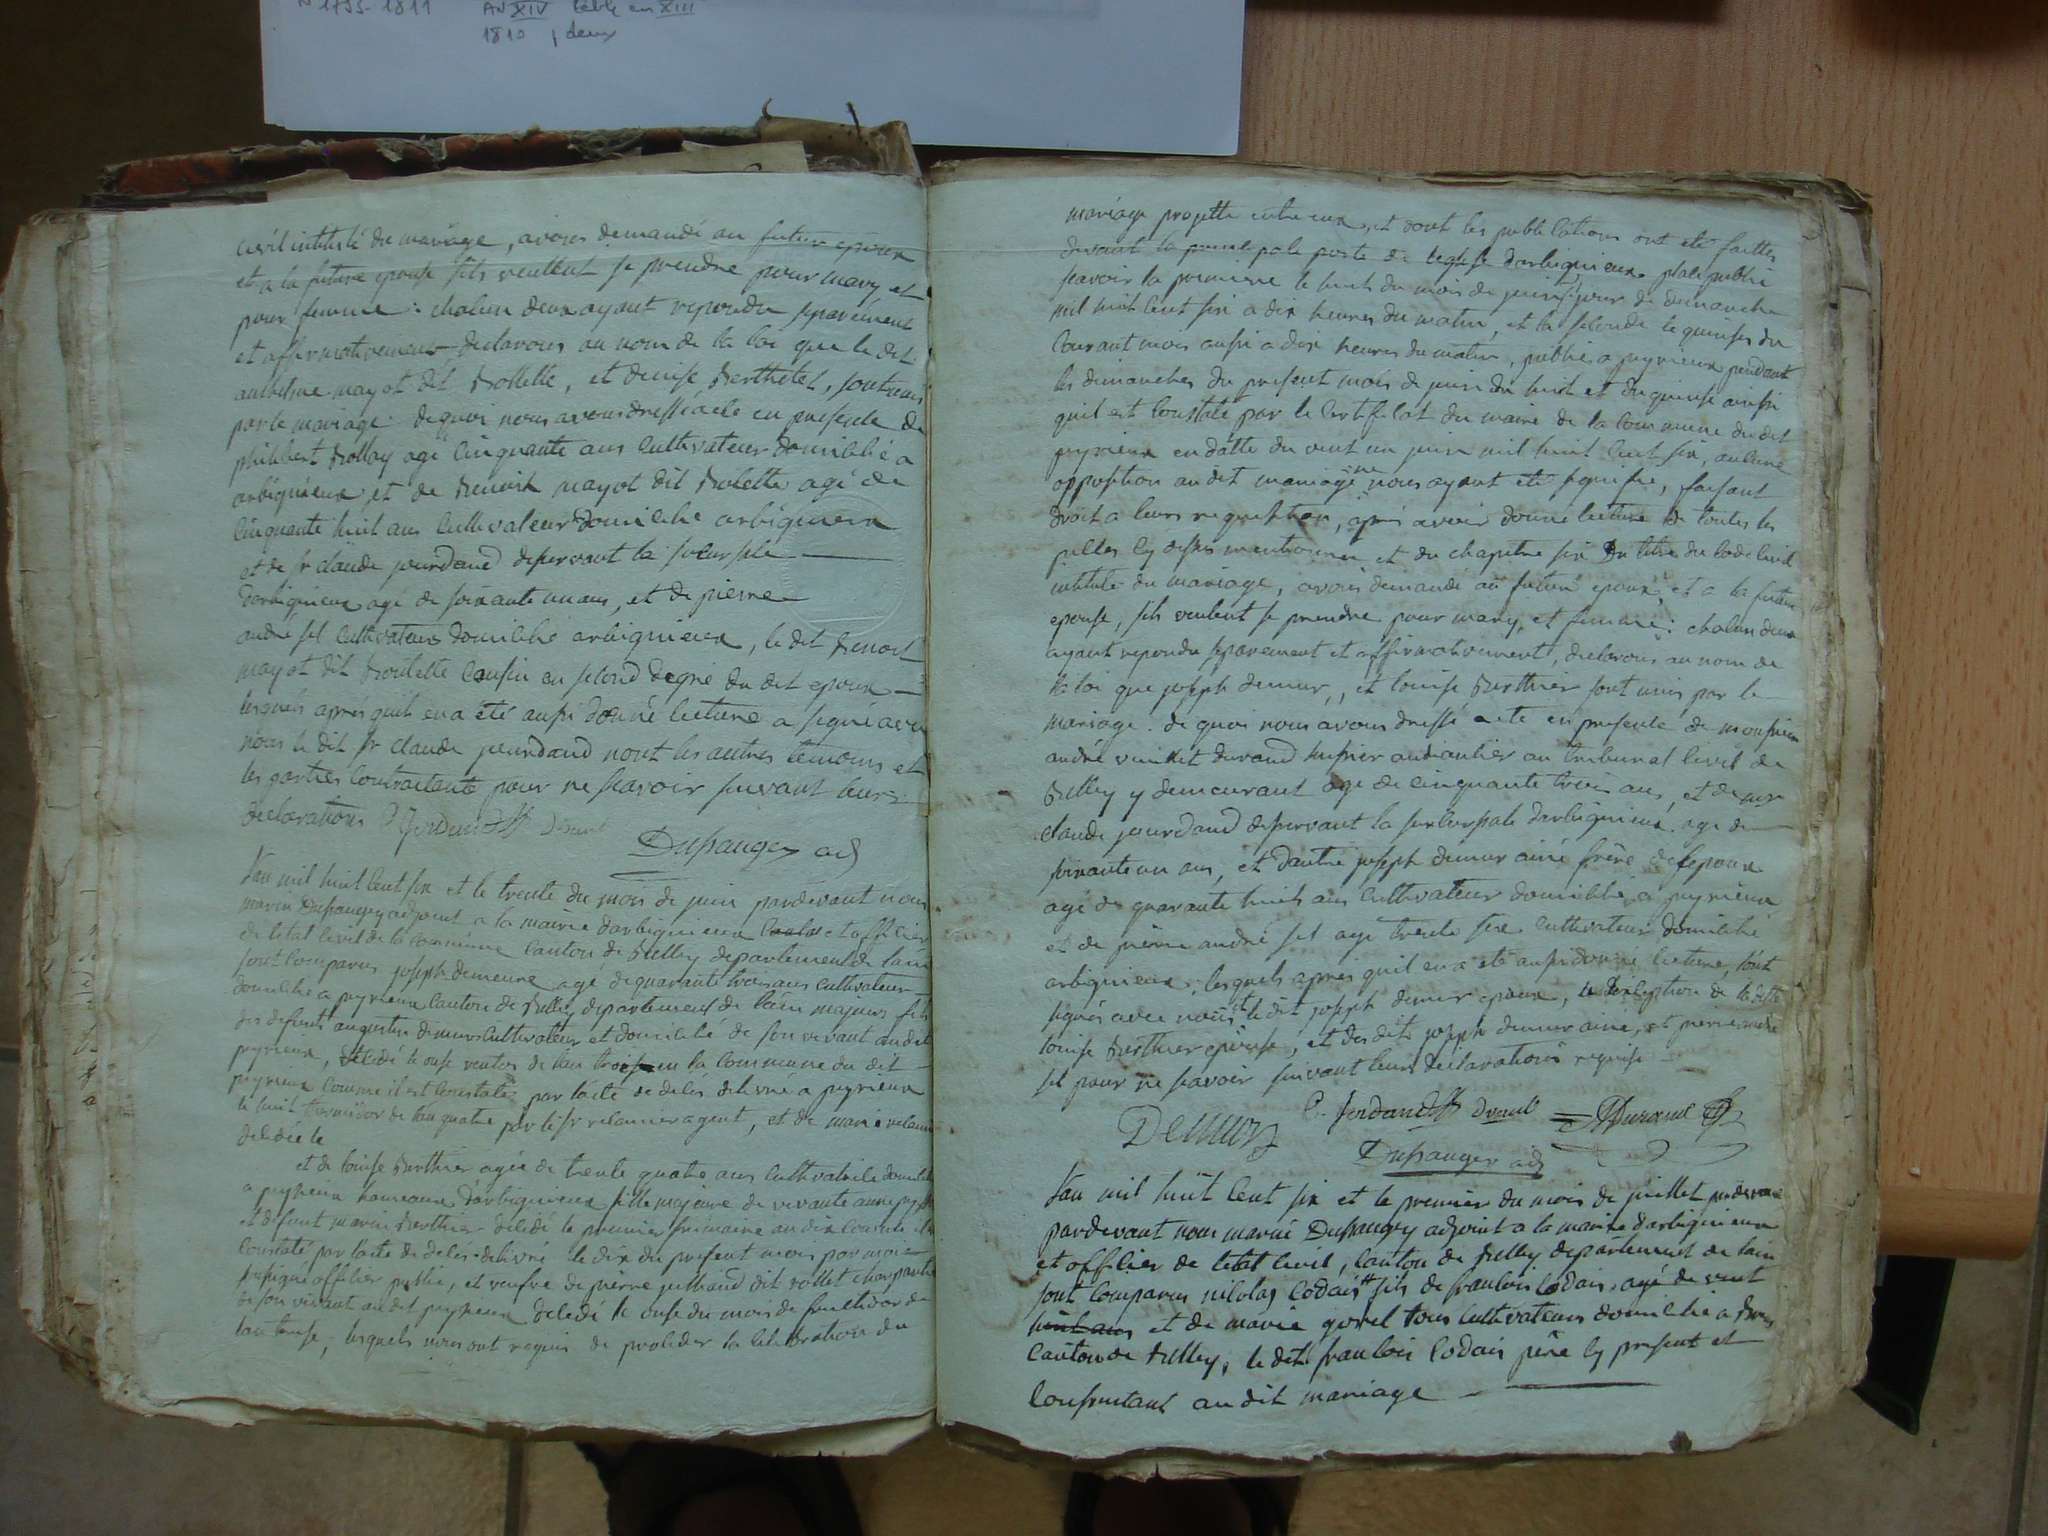 N 1793-1811 An XIV table an XIII
1810 , deux
civil intitulé du mariage, avons demandé au futur epoux
et a la future epouse sils veullent se prendre pour mary et
pour femme : chalun deux ayant repondu separément
et affirmativement declarons au nom de la loi que le dit
anthelme mayot dit Rollette, et denise Berthelet, sont unis
par le mariage. de quoi nous avons dressé acte en presele de
philibert Rollay agé cinquante ans cultivateur domicilié a
arbignieux et de Benoit mayot dit Rolette agé de
cinquante huit ans cultivateur domicilié arbignieux
et de sr claude jourdand deservant la
darbignieux agé de soixante un ans, et de pierre
andré sel cultivateur domicilié arbignieux, le dit Benoit
mayot dit Roulette cousin en selond degré du dit epoux
lesquels apres quil en a été aussi donné lecture a signé avec
nous le dit sr claude jourdand nont les autres temoins et
les parties contractante pour ne scavoir suivant leurs
declarations C Jordan
Dupaugey adj
Lan mil huit cent six et le trente du mois de juin pardevant nous
marin Dupaugey adjoint a la mairie darbignieux et officier
de letat civil de la commune canton de Belley departement de lain
sont comparus joseph demeure agé de quarante trois ans cultivateur
domicilié a peyrieux canton de Belley departement de lain majeur fils
des defunts augustin demeur cultivateur et domicilié de son vivant au dit
peyrieux, decédé le onse ventos de lan trois en la commune du dit
peyrieux comme il est constaté par lacte de decés delivré a peyrieux
le huit termidor de lan quatre par le sr agent, et de marie
decédée le
et de louise Berthier agée de trente quatre ans cultivatrile domicilié
a peyrieux hameaux darbignieux fille majeure de vivante anne
et defunt marin Berthier decédé le premier frimaire an dix comme il est
constaté par lacte de deces delivré le dix du present mois par moi
soussigné officier public, et veufve de pierre juthand dit rollet charpantie
de son vivant au dit peyrieux decedé le onse du mois de fructidor de
lan treise, lesquels nous ont requis de proceder la celebration du
mariage projetté entre eux, et dont les publications ont eté faittes
devant la principale porte de leglise darbignieux plale public
scavoir la premiere le huit du mois de juin jour de dimanche
mil huit cent six a dix heures du matin, et la selonde le quinse du
courant mois aussi a dix heures du matin, publié a peyrieux pendant
les dimanches du present mois de juin du huit et du quinse ainsi
quil est constaté par le certificat du maire de la commune du dit
peyrieux en datte du vint un juin mil huit cent six, aulune
opposition au dit mariage ne nous ayant eté signifie, faisant
droit a leurs requisition, aprés avoir donné lecture de toutes les
pieles cy dessus mentionnée et du chapitre six du titre du code civil
intitulé du mariage, avons demandé au futur epoux, et a la future
epouse, sils veulent se prendre pour mary, et femme : chalun deux
ayant repondu separement et affirmativement, declarons au nom de
la loi que joseph demur, et louise Berthier sont unis par le
mariage. de quoi nous avons dressé acte en presente de monsieur
andré durand huissier audiantier au tribunal civil de
Belley y demeurant agé de cinquante trois ans, et de sr
claude jourdand deservant la surcursale darbignieux agé de
soixante un ans, et dautre joseph demur ainé frere de lepoux
agé de quarante huit ans cultivateur domicilié a peyrieux
et de pierre andré sel agé trente six cultivateur domicilié
arbignieux, lesquels apres quil en a eté aussi donné lecture, sont
signés avec nous et le dit joseph demur epoux, a lexception de la ditte
louise Berthier epouse, et des dits joseph demur ainé, et pierre andré
sel pour ne scavoir suivant leurs declarations requise
Demur C. Jordan Durand
Dupaugey adj
Lan mil huit cent six et le premier du mois de juillet
pardevant nous marin Dupaugey adjoint a la mairie darbignieux
et officier de letat civil, canton de Belley departement de lain
sont comparus nilolas Codais fils de francois Codais, agé de vint
huit ans et de marie gonel tous cultivateurs domicilié a Brens
canton de Belley, le dit francois Codais père cy present et
consentant au dit mariage